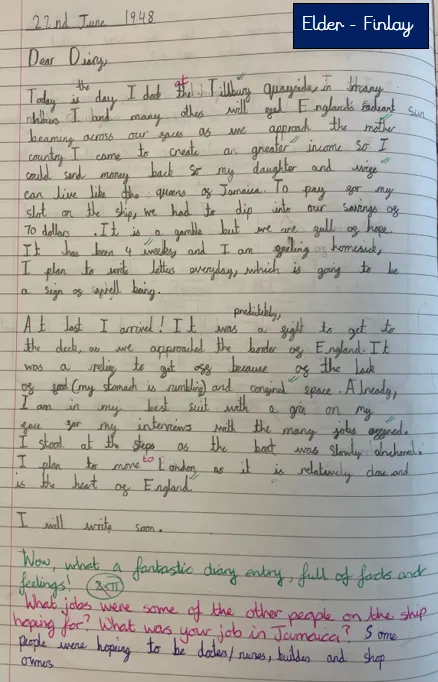 Elder - Finlay
22nd June 1948
Dear Diary,
Today is the day I dock at Tillbury quayside, in
I and many others will feel England's radiant sun
beaming across our faces as we approach the mother
country. I came to create an greater income so I
could send money back so my daughter and wife
can live like the queens of Jamaica. To pay for my
slot on the ship, we had to dip into our savings of
70 dollars. It is a gamble but we are full of hope.
It has been 4 weeks and I am feeling homesick,
I plan to write letters everyday, which is going to be
a sign of well being.
predictibly,
At last I arrived! It was a fight to get to
the deck, as we approached the border of England. It
was a relief to get off because of the lack
of food (my stomach is rumbling) and confined space. Already,
I am in my best suit with a grin on my
face for my interviews with the many jobs offered.
I stood at the steps as the boat was slowly anchored.
I plan to move to London as it is relatively close and
is the heart of England
I will write soon.
Wow, what a fantastic diary entry, full of facts and
feelings!
What jobs were some of the other people on the ship
hoping for? What was your job in Jamaica? Some
people were hoping to be doctors/nurses, builders and shop
owners